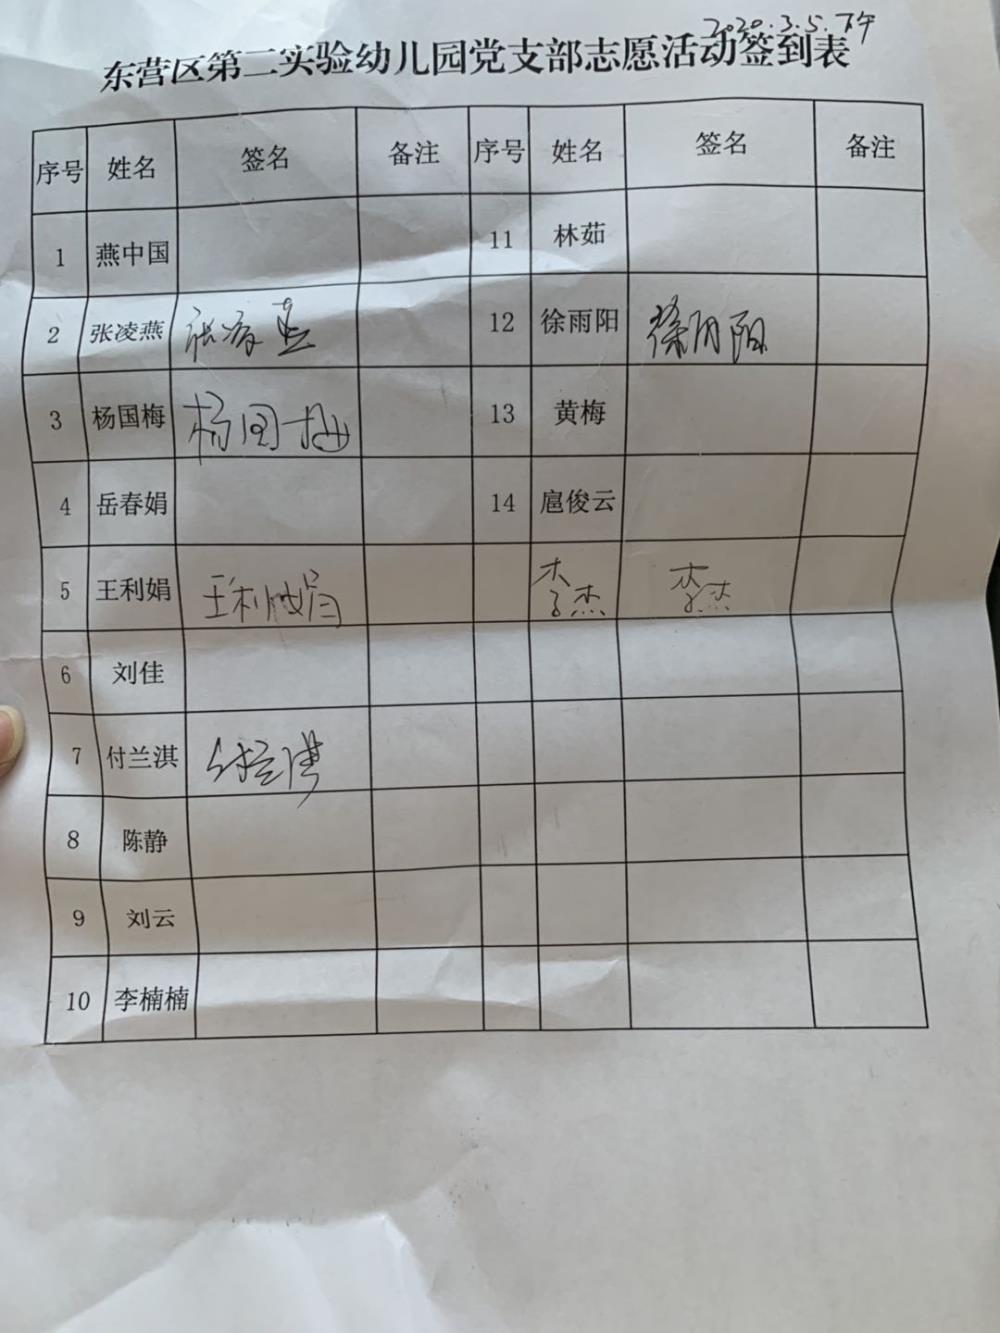 2020.3.5.下午
东营区第二实验幼儿园党支部志愿活动签到表
序号 姓名 签名 备注 序号 姓名 签名 备注
1 燕中国 11 林茹
2 张凌燕 张凌燕 12 徐雨阳 徐雨阳
3 杨国梅 杨国梅 13 黄梅
4 岳春娟 14 扈俊云
5 王利娟 王利娟 李杰 李杰
6 刘佳
7 付兰淇 付兰淇
8 陈静
9 刘云
10 李楠楠